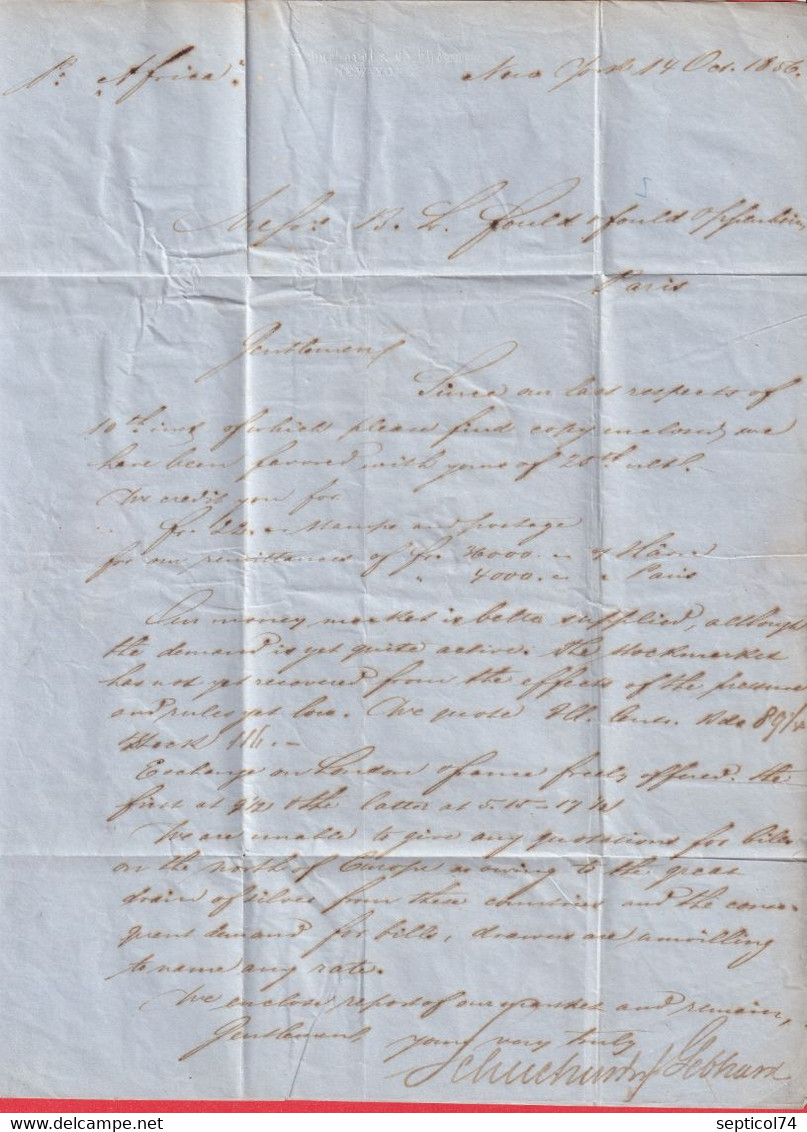 pr "Africa"
New York 14 Oct. 1856.
Messrs B. L. Fould & Fould Oppenheim
Paris
Gentlemen
Since our last respects of
10th inst of which please find copy enclosed, we
have been favored with yours of 26th ult.
We credit you for
fr 22. Stamps and postage
for our remittances of fr 36000. " Hâvre
" 4000. " " Paris
Our money market is better supplied, although
the demand is yet quite active. The stockmarket
has not yet recovered from the effects of the pressure
and rules yet low. We quote Ill. Cent. Bds 89 1/4
Stock 116.-
Exchange on London & France freely offered. the
first at & the latter at 5.15-17 1/2
We are unable to give any quotations for bills
on the north of Europe as owing to the great
drain of silver from these countries and the conse-
quent demand for bills, drawers are unwilling
to name any rate.
We enclose report of our market and remain,
Gentlemen
yours very truly
Schuchardt & Gebhard
septicol74